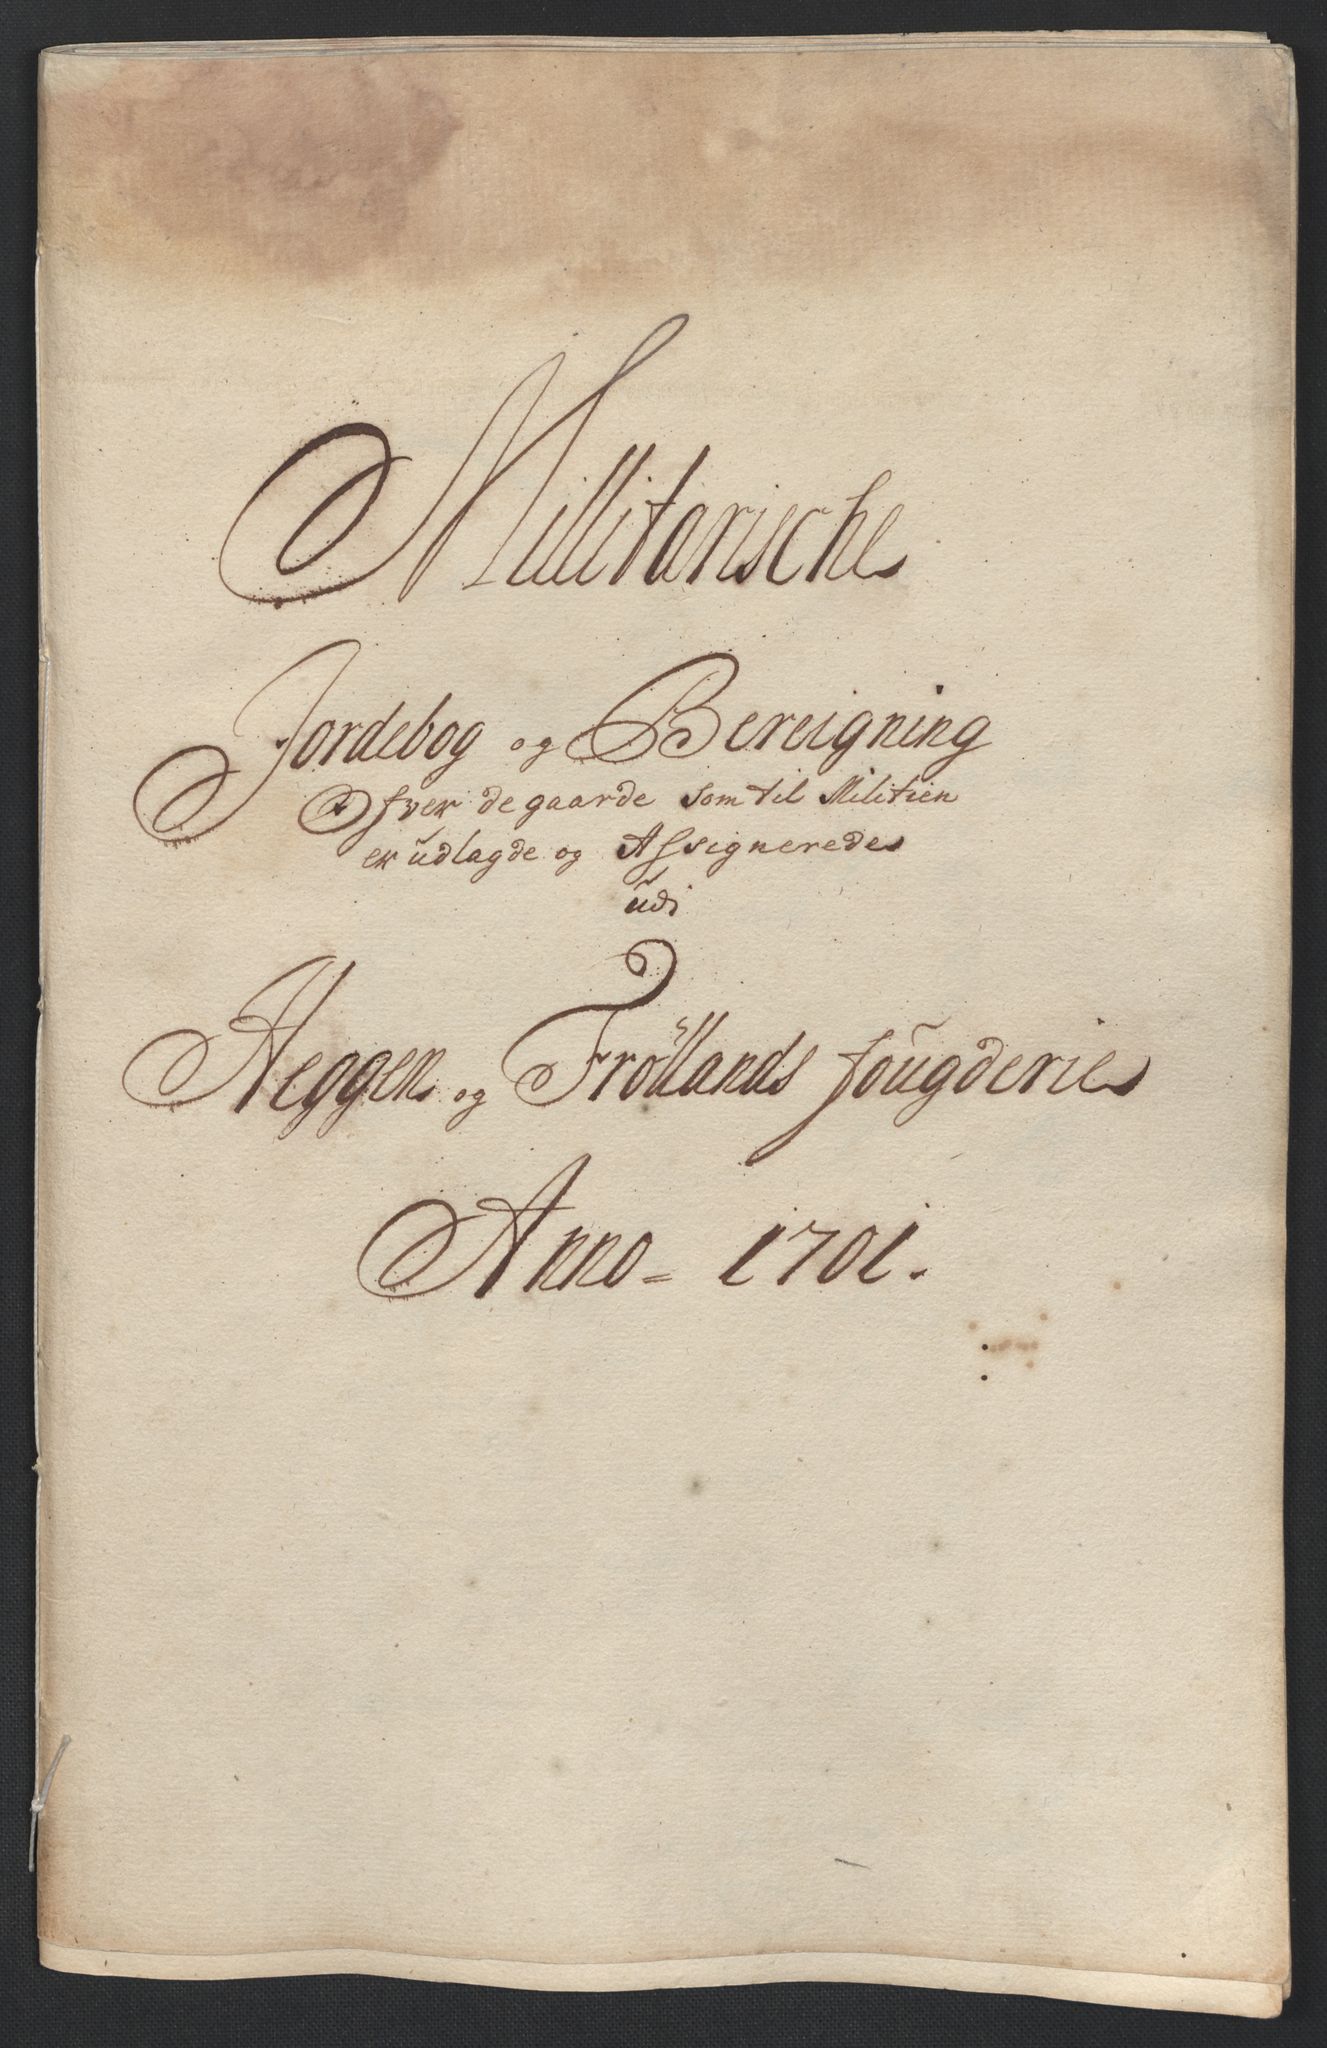 Millitarische
Jordebog og Bereigning
Ofver de gaarde som til Militien
er udlagde og Assignerede
udi
Heggen og Fröllands fougderie
Anno = 1701.